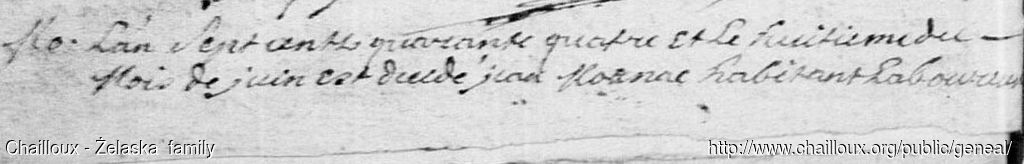 Mo: L'an Sept cents quarante quatre et Le huitieme du
Mois de juin est decedé jean Moenac habitant Laboureur
Chailloux - Żelaska family
http://www.chailloux.org/public/geneal/